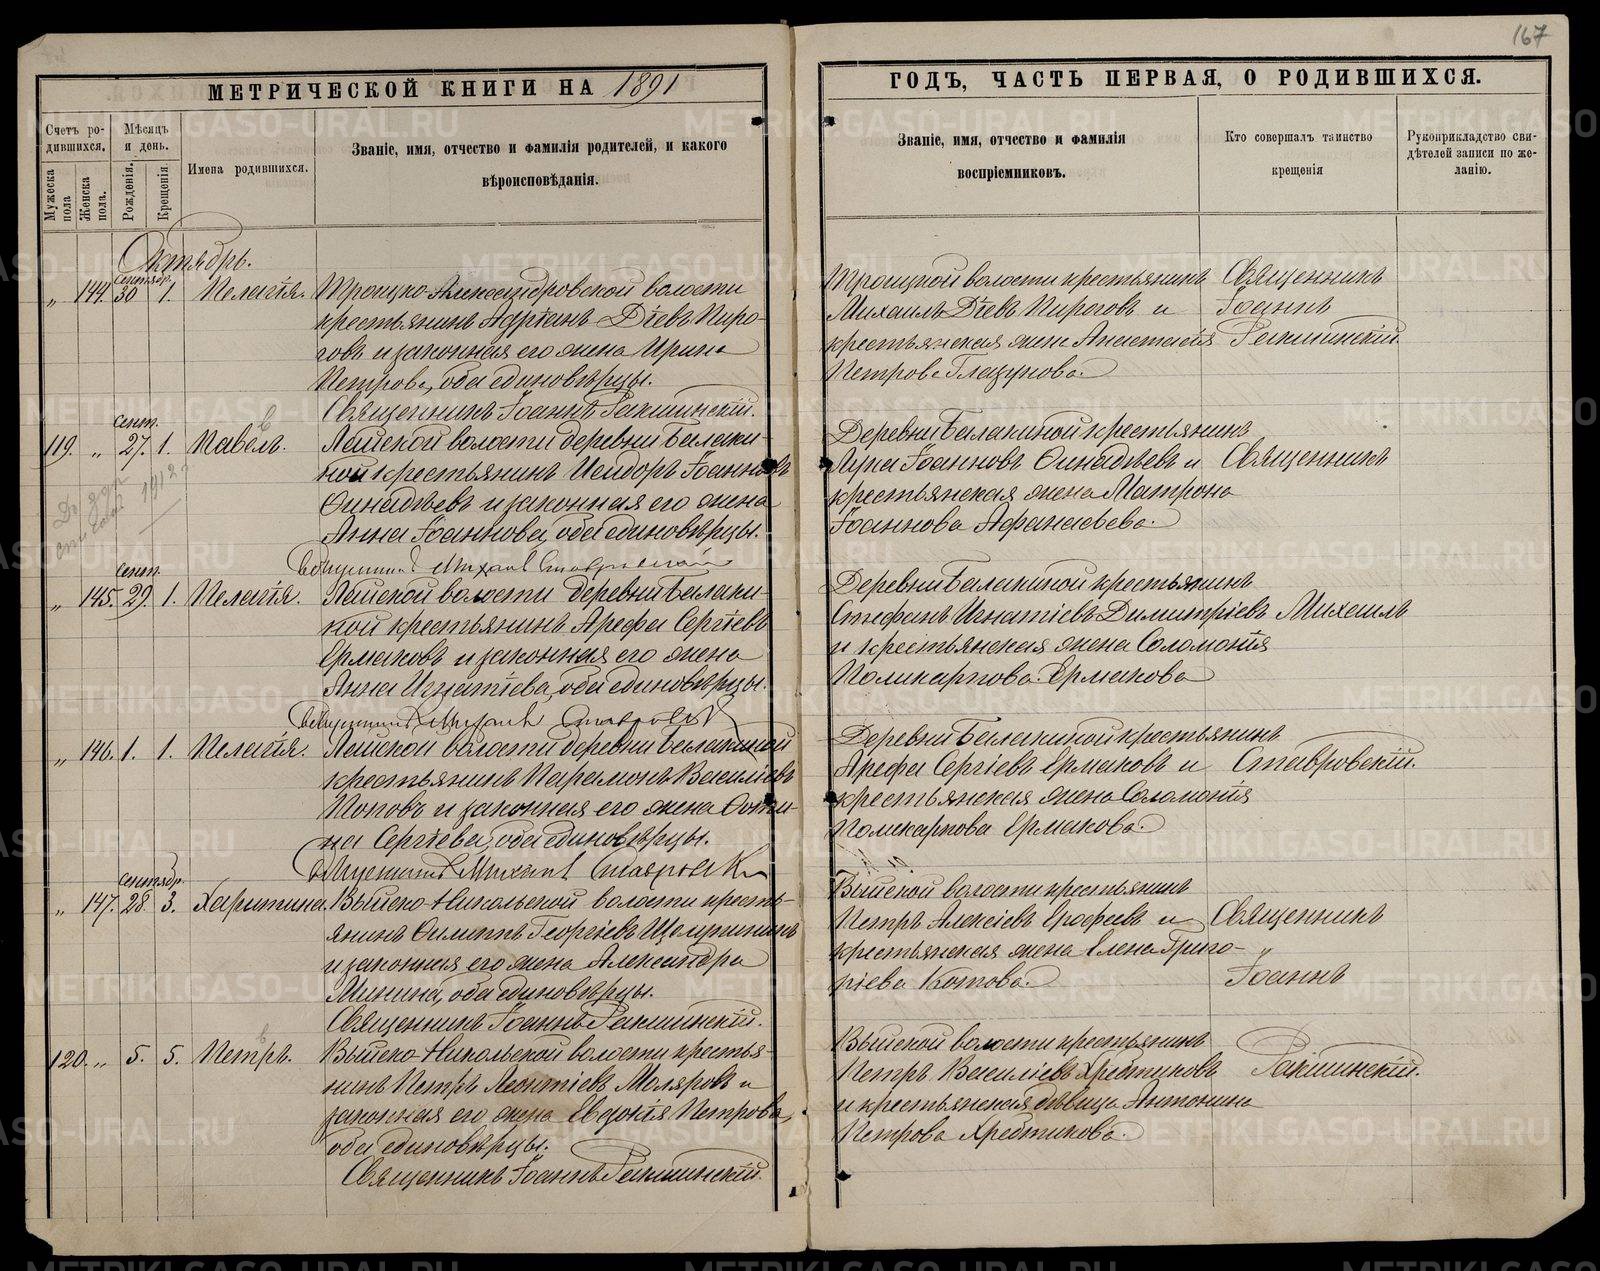 167
МЕТРИЧЕСКОЙ КНИГИ НА 1891
ГОДЪ, ЧАСТЬ ПЕРВАЯ, О РОДИВШИХСЯ.
Счетъ ро-
дившихся.
Мужеска
пола
Женска
пола.
Мѣсяцъ
и день.
Рожденія.
Крещенія.
Имена родившихся.
Званіе, имя, отчество и фамилія родителей, и какого
вѣроисповѣданія.
Званіе, имя, отчество и фамилія
воспріемниковъ.
Кто совершалъ таинство
крещенія
Рукоприкладство сви-
дѣтелей записи по же-
ланію.
Октябрь.
сентябр.
„ 144. 30 1. Пелагія.
Троицко-Александровской волости
крестьянинъ Адріанъ Діевъ Пиро-
говъ и законная его жена Ирина
Петрова, оба единовѣрцы.
Священникъ Іоаннъ Ракшинскій.
Троицкой волости крестьянинъ
Михаилъ Діевъ Пироговъ и
крестьянская жена Анастасія
Петрова Глазунова.
Священникъ
Іоаннъ
Ракшинскій.
сент.
119. „ 27. 1. Павелъ.
Лайской волости деревни Балаки-
ной крестьянинъ Исидоръ Іоанновъ
Финадѣевъ и законная его жена
Анна Іоаннова, оба единовѣрцы.
Священникъ Михаилъ Ставровскій
Деревни Балакиной крестьянинъ
Лука Іоанновъ Финадѣевъ и
крестьянская жена Матрона
Іоаннова Афанасьева.
Священникъ
1912
сент.
„ 145. 29. 1. Пелагія.
Лайской волости деревни Балаки-
ной крестьянинъ Арефа Сергіевъ
Ермаковъ и законная его жена
Анна Игнатіева, оба единовѣрцы.
Священникъ Михаилъ Ставровскій
Деревни Балакиной крестьянинъ
Стефанъ Игнатіевъ Димитріевъ
и крестьянская жена Соломонія
Поликарпова Ермакова
Михаилъ
„ 146. 1. 1. Пелагія.
Лайской волости деревни Балакиной
крестьянинъ Парамонъ Василіевъ
Поповъ и законная его жена Фоти-
на Сергіева, оба единовѣрцы.
Священникъ Михаилъ Ставровскій
Деревни Балакиной крестьянинъ
Арефа Сергіевъ Ермаковъ и
крестьянская жена Соломонія
Поликарпова Ермакова.
Ставровскій.
сентябр.
„ 147. 28. 3. Харитина.
Выйско-Никольской волости кресть-
янинъ Филиппъ Георгіевъ
и законная его жена Александра
Минина, оба единовѣрцы.
Священникъ Іоаннъ Ракшинскій.
Выйской волости крестьянинъ
Петръ Алексіевъ Ерофеевъ и
крестьянская жена Елена Григо-
ріева Котова.
Священникъ
„
Іоаннъ
120. „ 5. 5. Петръ.
Выйско-Никольской волости крестья-
нинъ Петръ Леонтіевъ Моляровъ и
законная его жена Евдокія Петрова,
оба единовѣрцы.
Священникъ Іоаннъ Ракшинскій.
Выйской волости крестьянинъ
Петръ Василіевъ Хребтиковъ
и крестьянская дѣвица Антонина
Петрова Хребтикова.
Ракшинскій.
METRIKI.GASO-URAL.RU